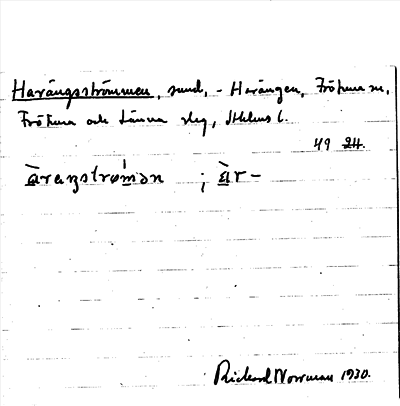 Harängsströmmen, sund, - Harängen, Frötuna sn,
Frötuna och Länna slg, Sthlms l.
49 24.
àraŋstrømən ; àr-
Rickard Norrman 1930.